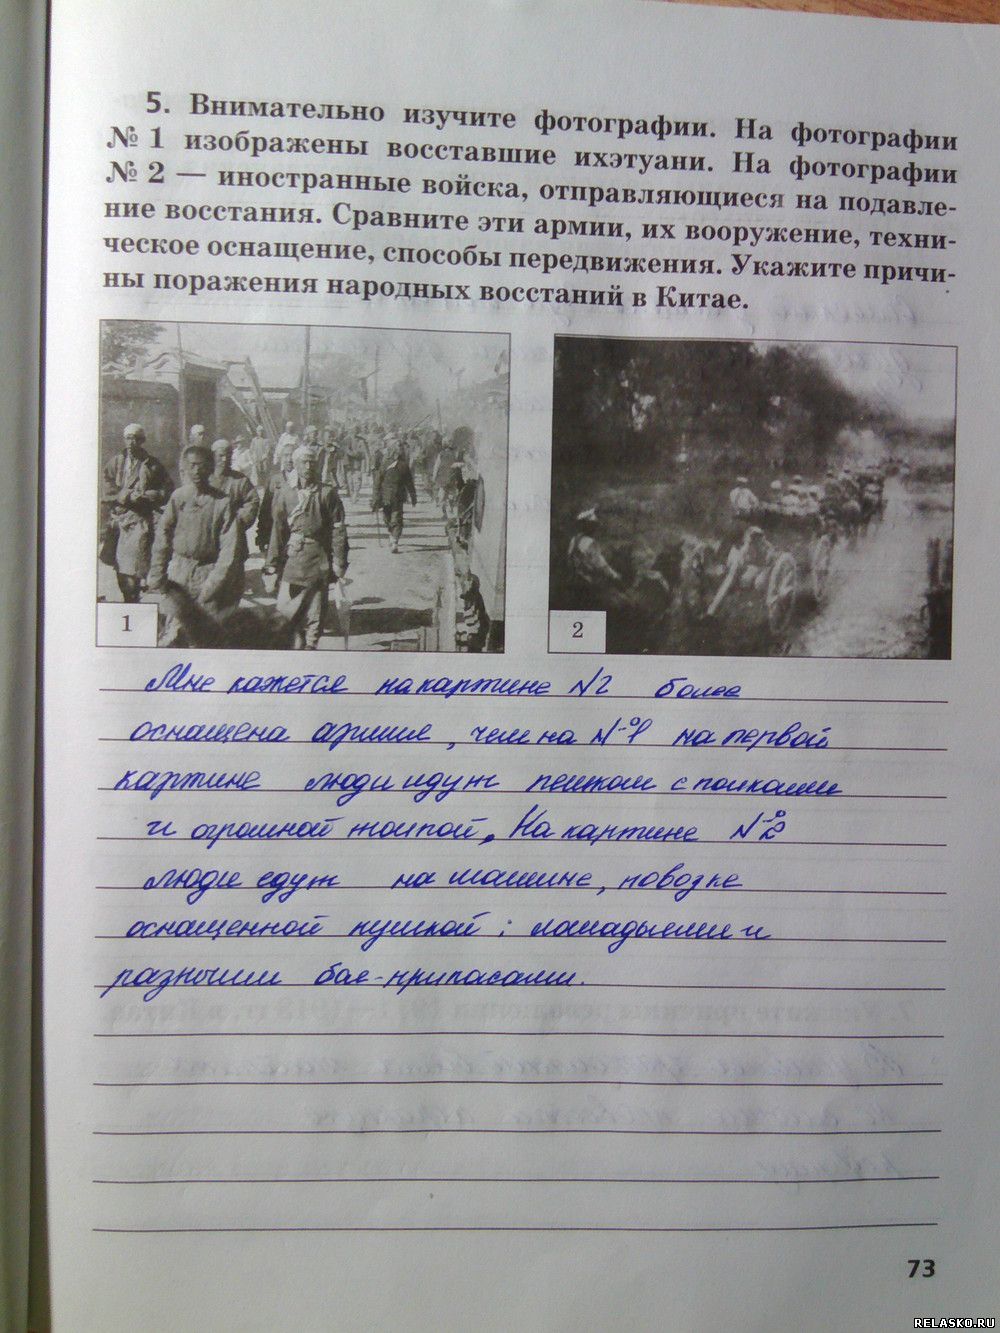 5. Внимательно изучите фотографии. На фотографии
№ 1 изображены восставшие ихэтуани. На фотографии
№ 2 — иностранные войска, отправляющиеся на подавле-
ние восстания. Сравните эти армии, их вооружение, техни-
ческое оснащение, способы передвижения. Укажите причи-
ны поражения народных восстаний в Китае.
1
2
Мне кажется на картине №2 более
оснащена армия, чем на №1 на первой
картине люди идут пешком с палками
и огромной толпой. На картине №2
люди едут на машине, повозке
оснащенной пушкой; лошадьеми и
разными бое-припасами.
73
RELASKO.RU